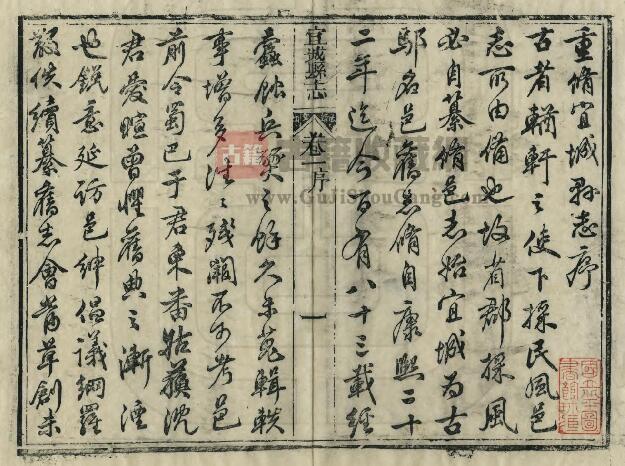 重脩宜城縣志序
古者輶軒之使下採民風邑
志所由備也故省郡採風
必自纂脩邑志始宜城為古
鄢名邑舊志脩自康熙二十
二年迄今百有八十三載經
宜城縣志
卷一序
一
蠹蝕兵燹之餘久未蒐輯軼
事增多往往殘闕不可考邑
前令蜀巴子君東番姑蘇沈
君愛暄曾懼舊典之漸湮
也銳意延訪邑紳倡議網羅
散佚續纂舊志會當草創未
古籍
www.GuJiShouCang.com